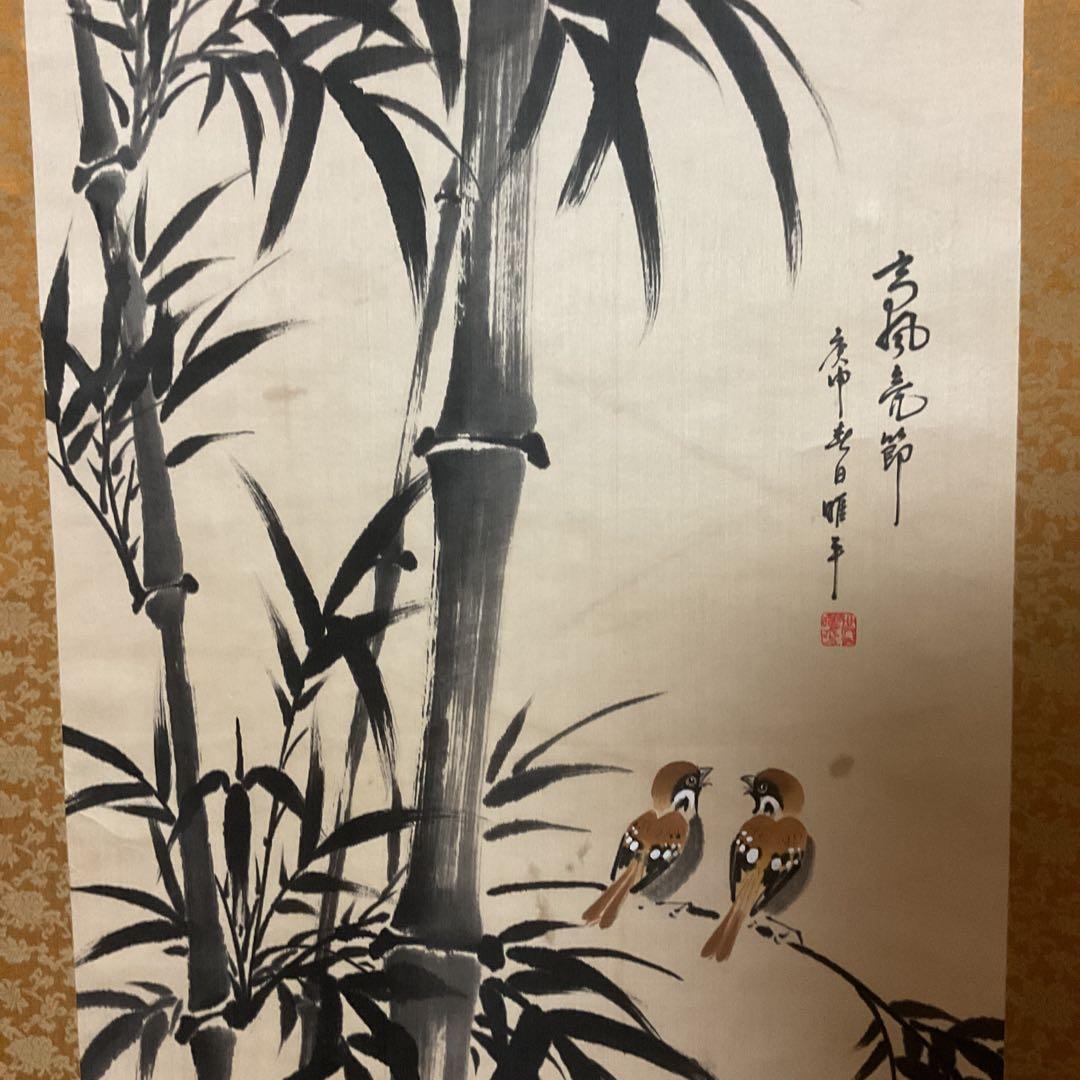 高風亮節
庚申春日唯平